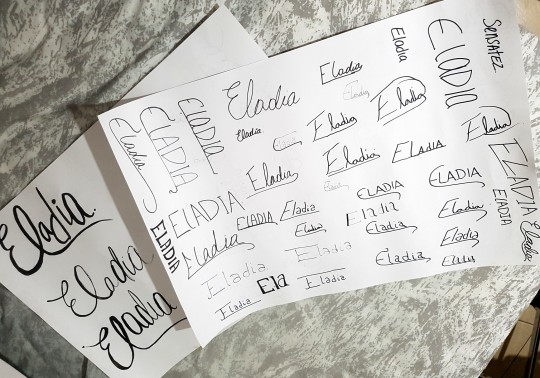 Eladia.
Eladia
Eladia
Eladia
ELADIA
ELADIA
Eladia
Eladia
Eladia
Eladia
ELADIA
SENSATEZ
Eladia
Eladia
Eladia
Eladia
Eladia
Eladia
Eladia
ELADIA
Eladia
Eladia
ELADIA
ELADIA
ELADIA
ELADIA
ELADIA
Eladia
ELADIA
Eladia
Eladia
Eladia
Eladia
Eladia
Eladia
Eladia
Eladia
Eladia
Ela
Eladia
Eladia
Eladia
ELADIA